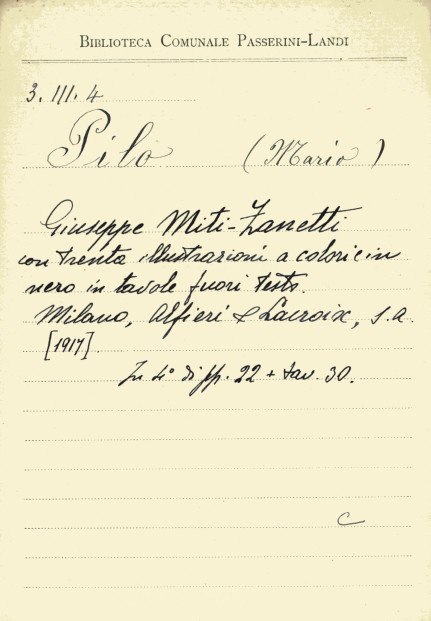 BIBLIOTECA COMUNALE PASSERINI-LANDI
3. III. 4
Pilo (Mario)
Giuseppe Miti-Zanetti
con trenta illustrazioni a colori e in
nero in tavole fuori testo.
Milano, Alfieri & Lacroix, s.a.
[1917].
In 4° di pp. 22 + tav. 30.
C